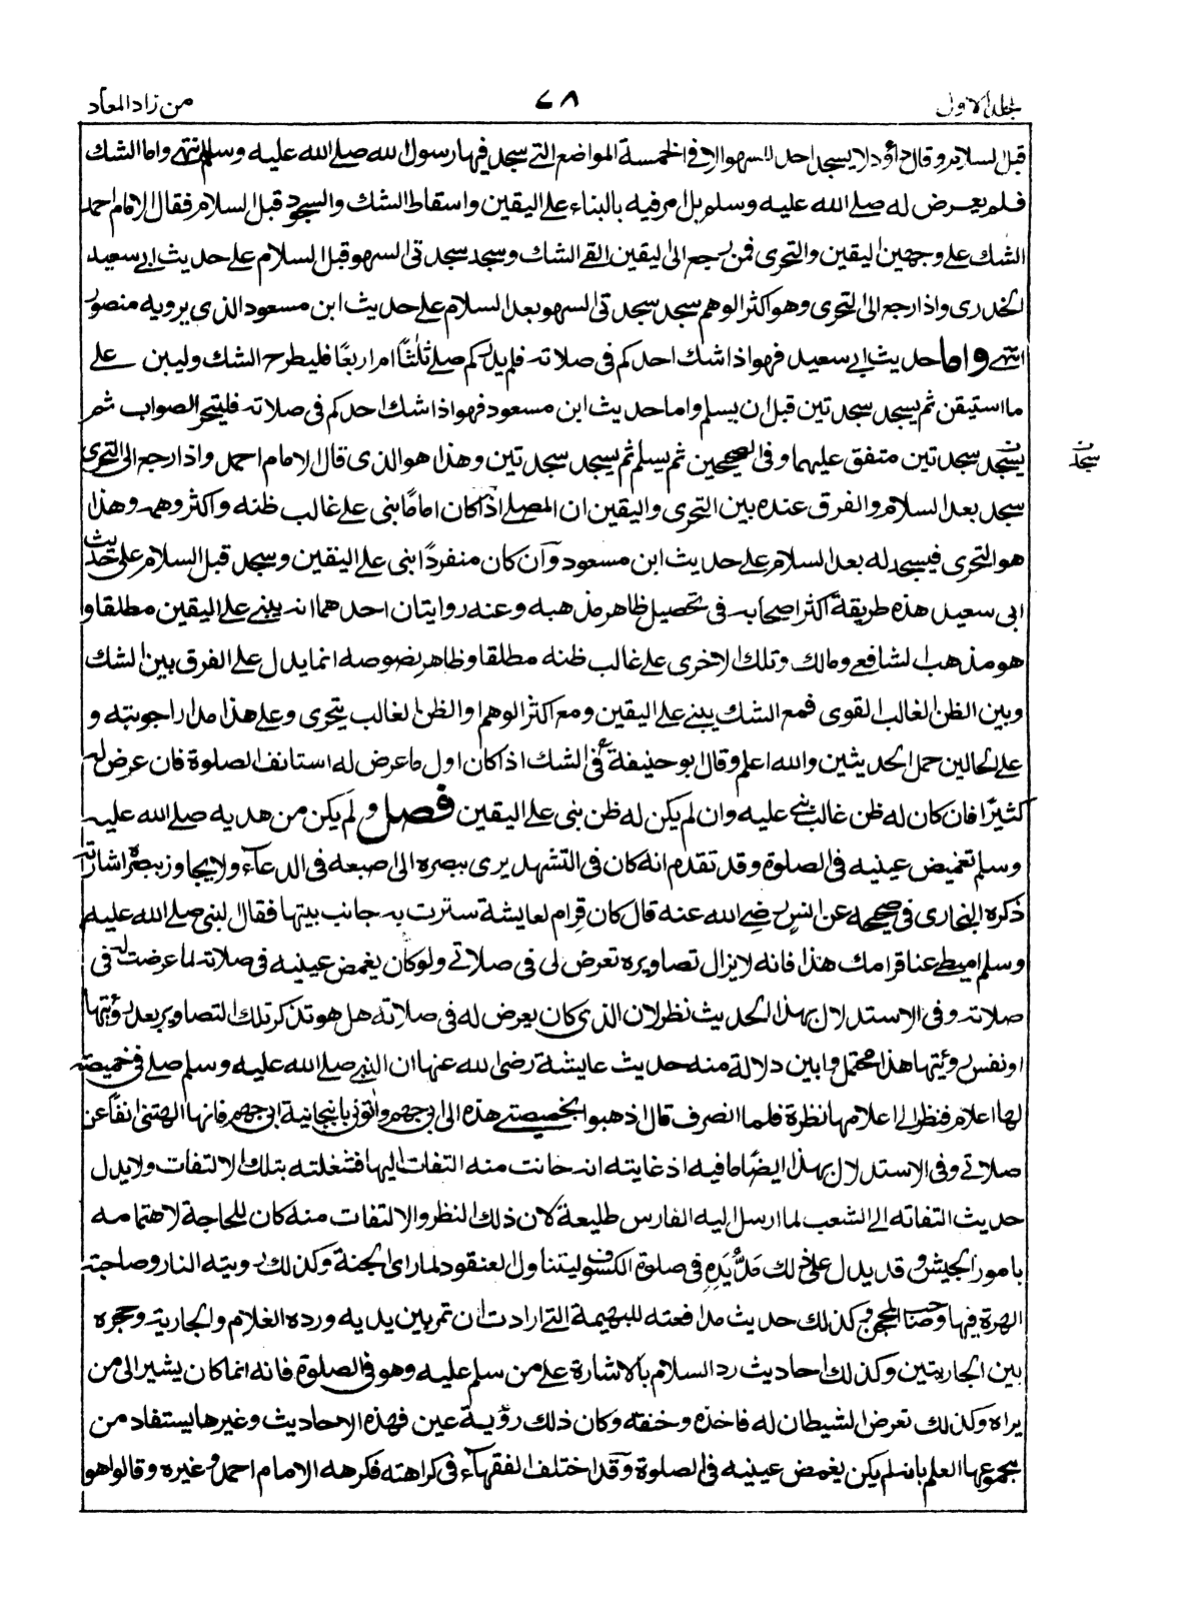 الجلد الاول
٧٨
من زاد المعاد
قبل السلام وقال داؤد لا يسجد احد للسهو الا فى الخمسة المواضع التى سجد فيها رسول الله صلى الله عليه وسلم انتهى واما الشك
فلم يعرض له صلى الله عليه وسلم بل امر فيه بالبناء على اليقين واسقاط الشك والسجود قبل السلام فقال الامام احمد
الشك على وجهين اليقين والتحرى فمن رجع الى اليقين القى الشك وسجد سجدتى السهو قبل السلام على حديث ابى سعيد
الخدرى واذا رجع الى التحرى وهو اكثر الوهم سجد سجدتى السهو بعد السلام على حديث ابن مسعود الذى يرويه منصور
انتهى واما حديث ابى سعيد فهو اذا شك احدكم فى صلاته فلم يدر كم صلى ثلثًا ام اربعًا فليطرح الشك وليبن على
ما استيقن ثم يسجد سجدتين قبل ان يسلم واما حديث ابن مسعود فهو اذا شك احدكم فى صلاته فليتحر الصواب ثم
يسجد سجدتين متفق عليهما وفى الصحيحين ثم يسلم ثم يسجد سجدتين وهذا هو الذى قال الامام احمد واذا رجع الى التحرى
سجد بعد السلام والفرق عنده بين التحرى واليقين ان المصلى اذا كان امامًا بنى على غالب ظنه واكثر وهمه وهذا
هو التحرى فيسجد له بعد السلام على حديث ابن مسعود وان كان منفردًا بنى على اليقين وسجد قبل السلام على حديث
ابى سعيد هذه طريقة اكثر اصحابه فى تحصيل ظاهر مذهبه وعنه روايتان احدهما انه يبنى على اليقين مطلقا و
هو مذهب الشافعى ومالك وتلك الاخرى على غالب ظنه مطلقا وظاهر نصوصه انما يدل على الفرق بين الشك
وبين الظن الغالب القوى فمع الشك يبنى على اليقين ومع اكثر الوهم او الظن الغالب يتحرى وعلى هذا مدار اجوبته و
على الحالين حمل الحديثين والله اعلم وقال ابو حنيفة فى الشك اذا كان اول ما عرض له استانف الصلوة فان عرض له
كثيرًا فان كان له ظن غالب بنى عليه وان لم يكن له ظن بنى على اليقين فصل ولم يكن من هديه صلى الله عليه
وسلم تغميض عينيه فى الصلوة وقد تقدم انه كان فى التشهد يرى ببصره الى اصبعه فى الدعآء ولا يجاوز بصره اشارته
ذكره البخارى فى صحيحه عن انس رضى الله عنه قال كان قرام لعايشة سترت به جانب بيتها فقال النبى صلى الله عليه
وسلم اميطى عنا قرامك هذا فانه لا يزال تصاويره تعرض لى فى صلاتى ولو كان يغمض عينيه فى صلاته لما عرضت له فى
صلاته وفى الاستدلال بهذا الحديث نظر لان الذى كان يعرض له فى صلاته هل هو تذكر تلك التصاوير بعد رؤيتها
او نفس رويتها هذا محتمل وابين دلالة منه حديث عايشة رضى الله عنها ان النبى صلى الله عليه وسلم صلى فى خميصة
لها اعلام فنظر الى اعلامها نظرة فلما انصرف قال اذهبوا بخميصتى هذه الى ابى جهم واتونى بانبجانية ابى جهم فانها الهتنى انفا عن
صلاتى وفى الاستدلال بهذا ايضًا ما فيه اذ غايته انه حانت منه التفات اليها فشغلته بتلك الالتفات ولا يدل
حديث التفاته الى الشعب لما ارسل اليه الفارس طليعة لان ذلك النظر والالتفات منه كان للحاجة لاهتمامه
بامور الجيش وقد يدل على ذلك مد يده فى صلوة الكسوف ليتناول العنقود لما راى الجنة وكذلك رويته النار وصاحبة
الهرة فيها وصاحب المحجن وكذلك حديث مدافعته للبهيمة التى ارادت ان تمر بين يديه ورده الغلام والجارية وحجزه
بين الجاريتين وكذلك احاديث رد السلام بالاشارة على من سلم عليه وهو فى الصلوة فانه انما كان يشير الى من
يراه وكذلك تعرض الشيطان له فاخذه وخنقه وكان ذلك رؤية عين فهذه الاحاديث وغيرها يستفاد من
مجموعها العلم بانه لم يكن يغمض عينيه فى الصلوة وقد اختلف الفقهآء فى كراهته فكرهه الامام احمد وغيره وقالوا هو